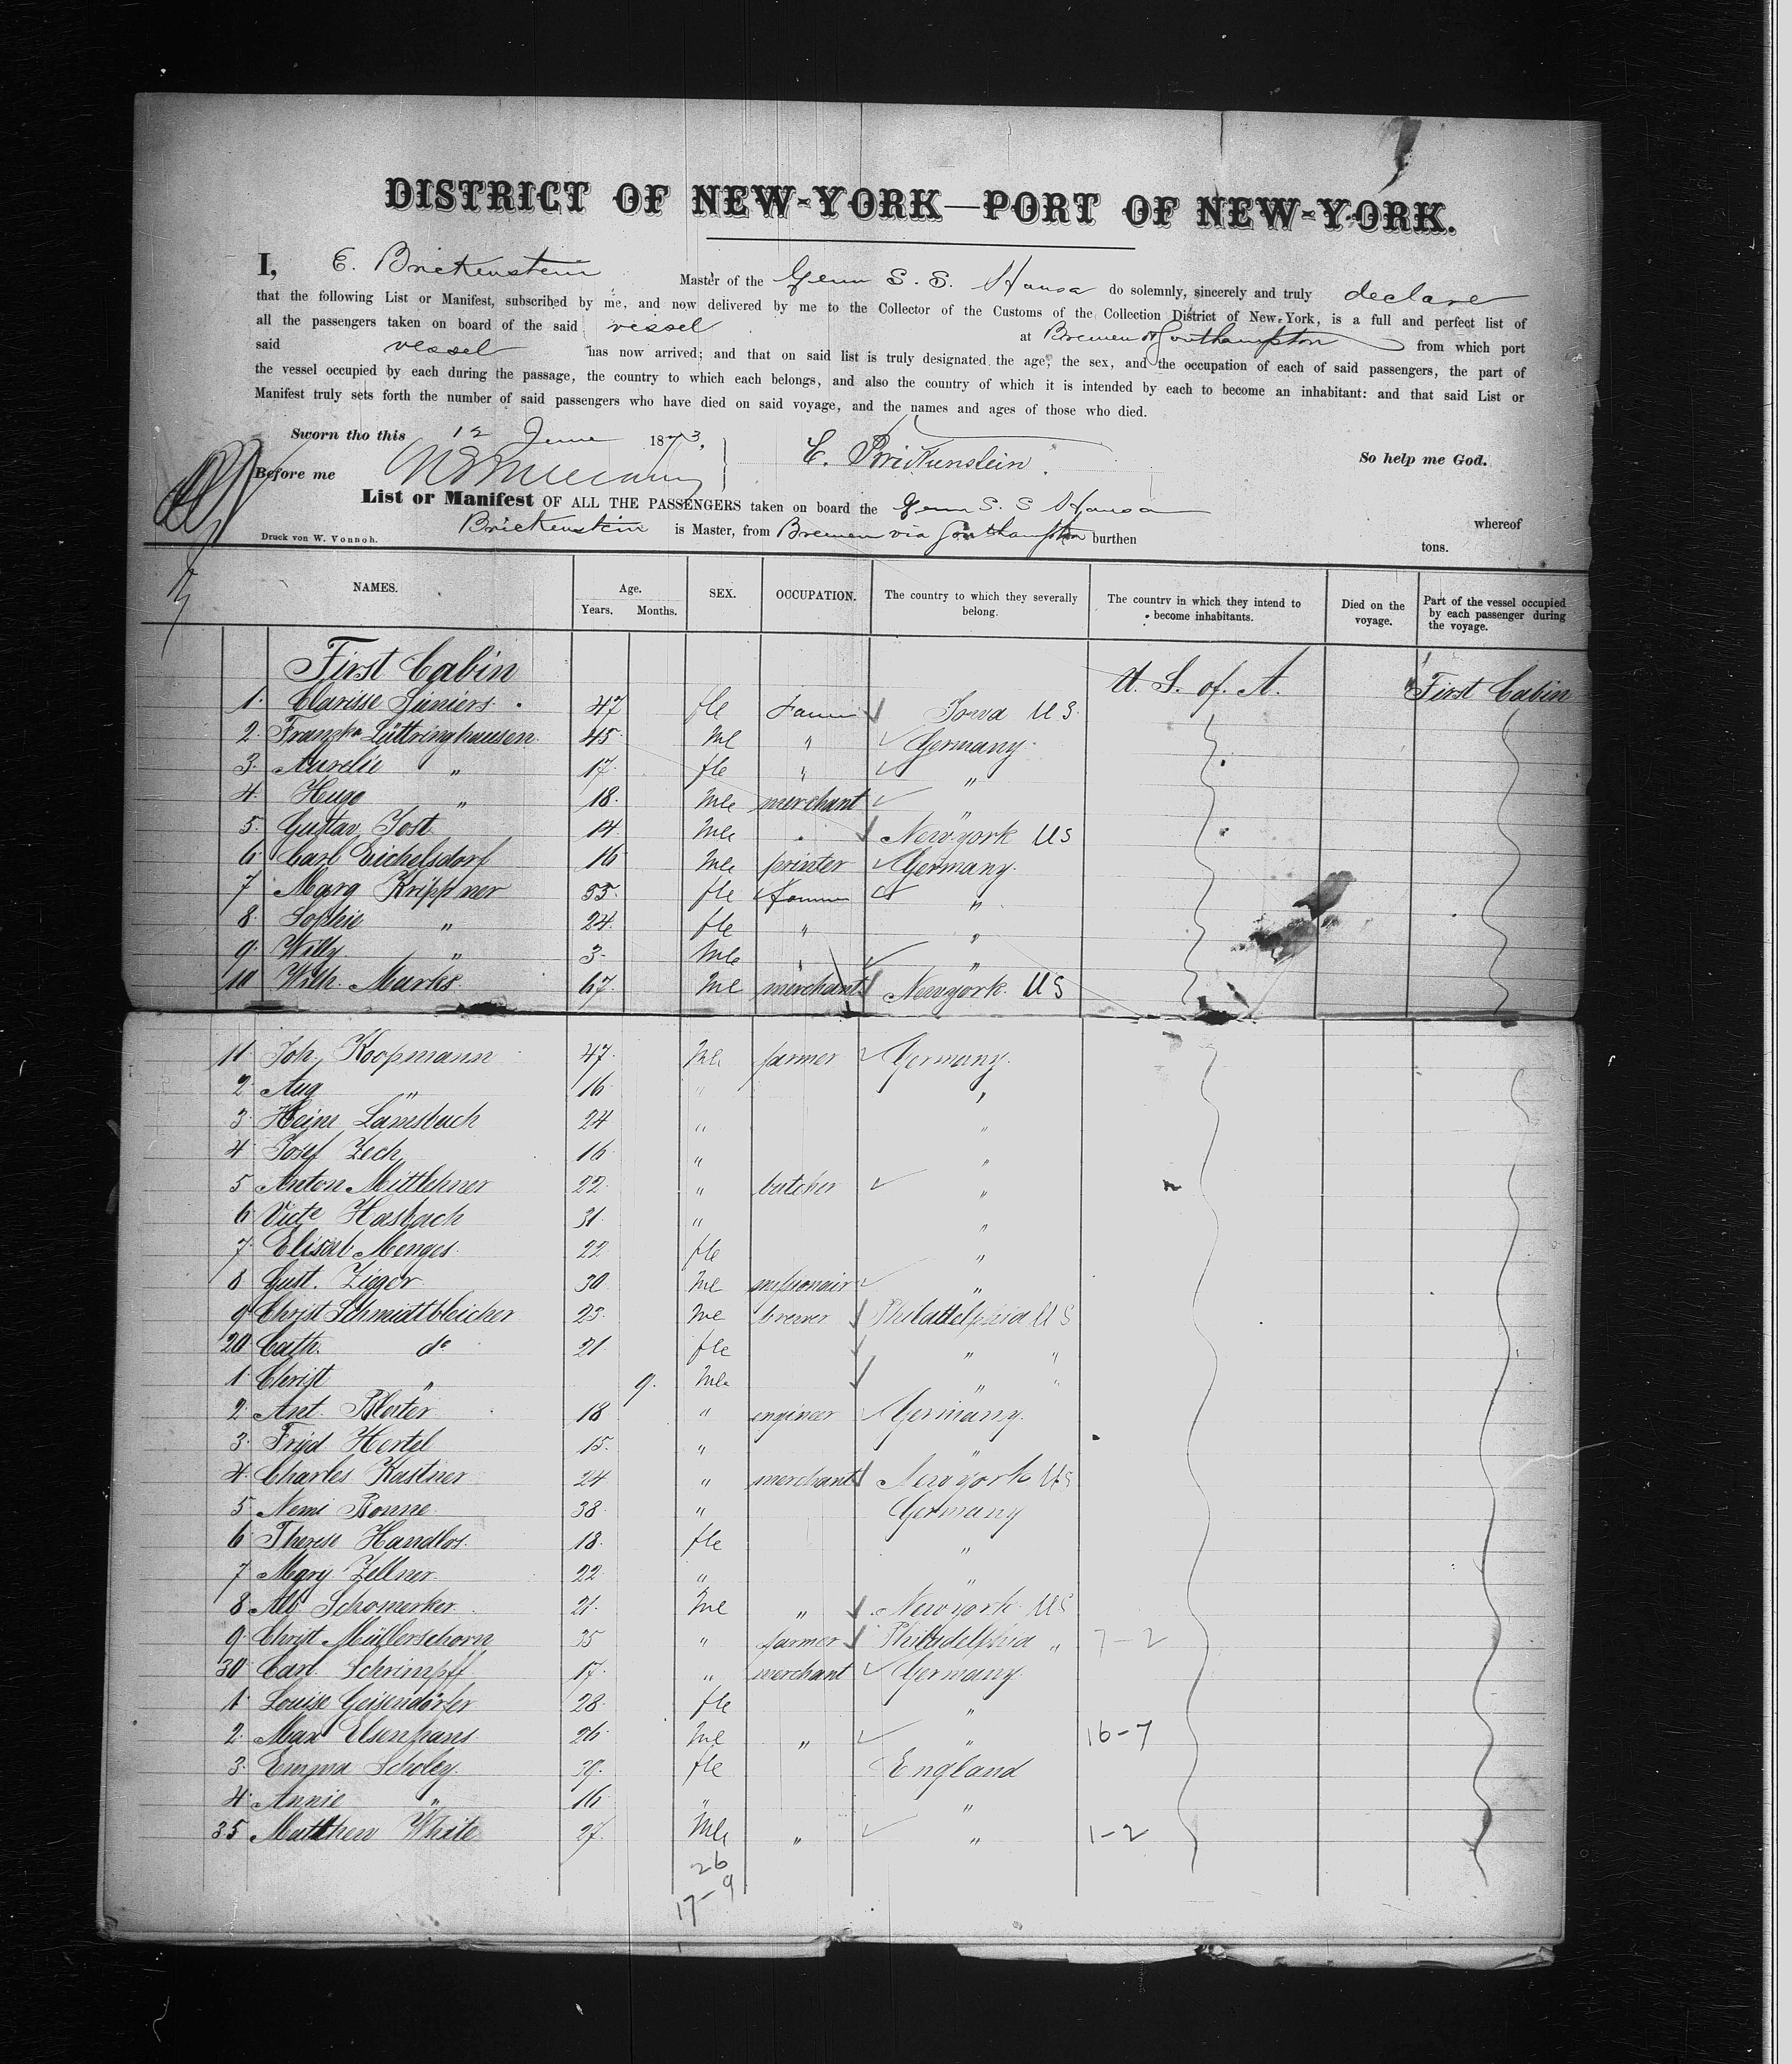 DISTRICT OF NEW-YORK—PORT OF NEW-YORK.
I, E. Brickenstein Master of the Germ S. S. Hansa do solemnly, sincerely and truly declare
that the following List or Manifest, subscribed by me, and now delivered by me to the Collector of the Customs of the Collection District of New-York, is a full and perfect list of
all the passengers taken on board of the said vessel at Bremen & Southampton from which port
said vessel has now arrived; and that on said list is truly designated the age, the sex, and the occupation of each of said passengers, the part of
the vessel occupied by each during the passage, the country to which each belongs, and also the country of which it is intended by each to become an inhabitant: and that said List or
Manifest truly sets forth the number of said passengers who have died on said voyage, and the names and ages of those who died.
Sworn tho this 12 June 1873. E. Brickenstein. So help me God.
Before me
List or Manifest OF ALL THE PASSENGERS taken on board the Germ S. S Hansa whereof
Brickenstein is Master, from Bremen via Southampton burthen tons.
Druck von W. Vonnoh.
NAMES. Age. Years. Months. SEX. OCCUPATION. The country to which they severally belong. The country in which they intend to become inhabitants. Died on the voyage. Part of the vessel occupied by each passenger during the voyage.
First Cabin U. S. of. A. First Cabin
1. Clarisse 47 fle Iowa U S.
2. Franzka Lüttringhausen 45 Ml " Germany.
3. Aurelie " 17. fle " "
4. Hugo " 18. Mle merchant "
5. Gustav Jost 14. Mle New york US
6. Carl Eichelsdorf 16 Mle printer Germany.
7 Marg Krippner 55. fle "
8. Sophie " 24. fle " "
9. Willy " 3. Mle " "
10 Wilh. Marks. 67. Ml merchant New york. US
11 Joh. Koopmann 47. Ml. farmer Germany.
2. Aug " 16 " "
3. Heinr Lamsbach 24 " "
4 Josef Zech 16 " "
5 Anton Mittlehner 22. " butcher "
6 Victe Hasbach 31. " "
7. Elisab Menges. 22 fle "
8. Gust. Zieger 30 Ml missionair "
9 Christ Schmidtbleicher 23. Ml brewer Philadelphia U S
20 Cath. do 21. fle " "
1. Christ " 9. Mle " "
2. Ant. Bloter 18 " engineer Germany.
3. Frid Hertel 15. " "
4. Charles Kastner 24 " merchant New york US
5. Nemi Bonne 38. " Germany
6 Therese Handlos. 18. fle "
7 Mary Zellner. 22. " "
8 Alb Schomerker. 21. Ml " New york US
9. Christ Müllerschorn 35 " farmer Philadelphia " 7-2
30 Carl Schrimpff 17. " merchant Germany
1. Louise Geisendörfer 28. fle "
2. Max Elsenhans 26 Ml " " 16-7
3. Emma Scholey. 39. fle England
4. Annie " 16 " "
35 Matthew White 27. Mle " " 1-2
26
17-9